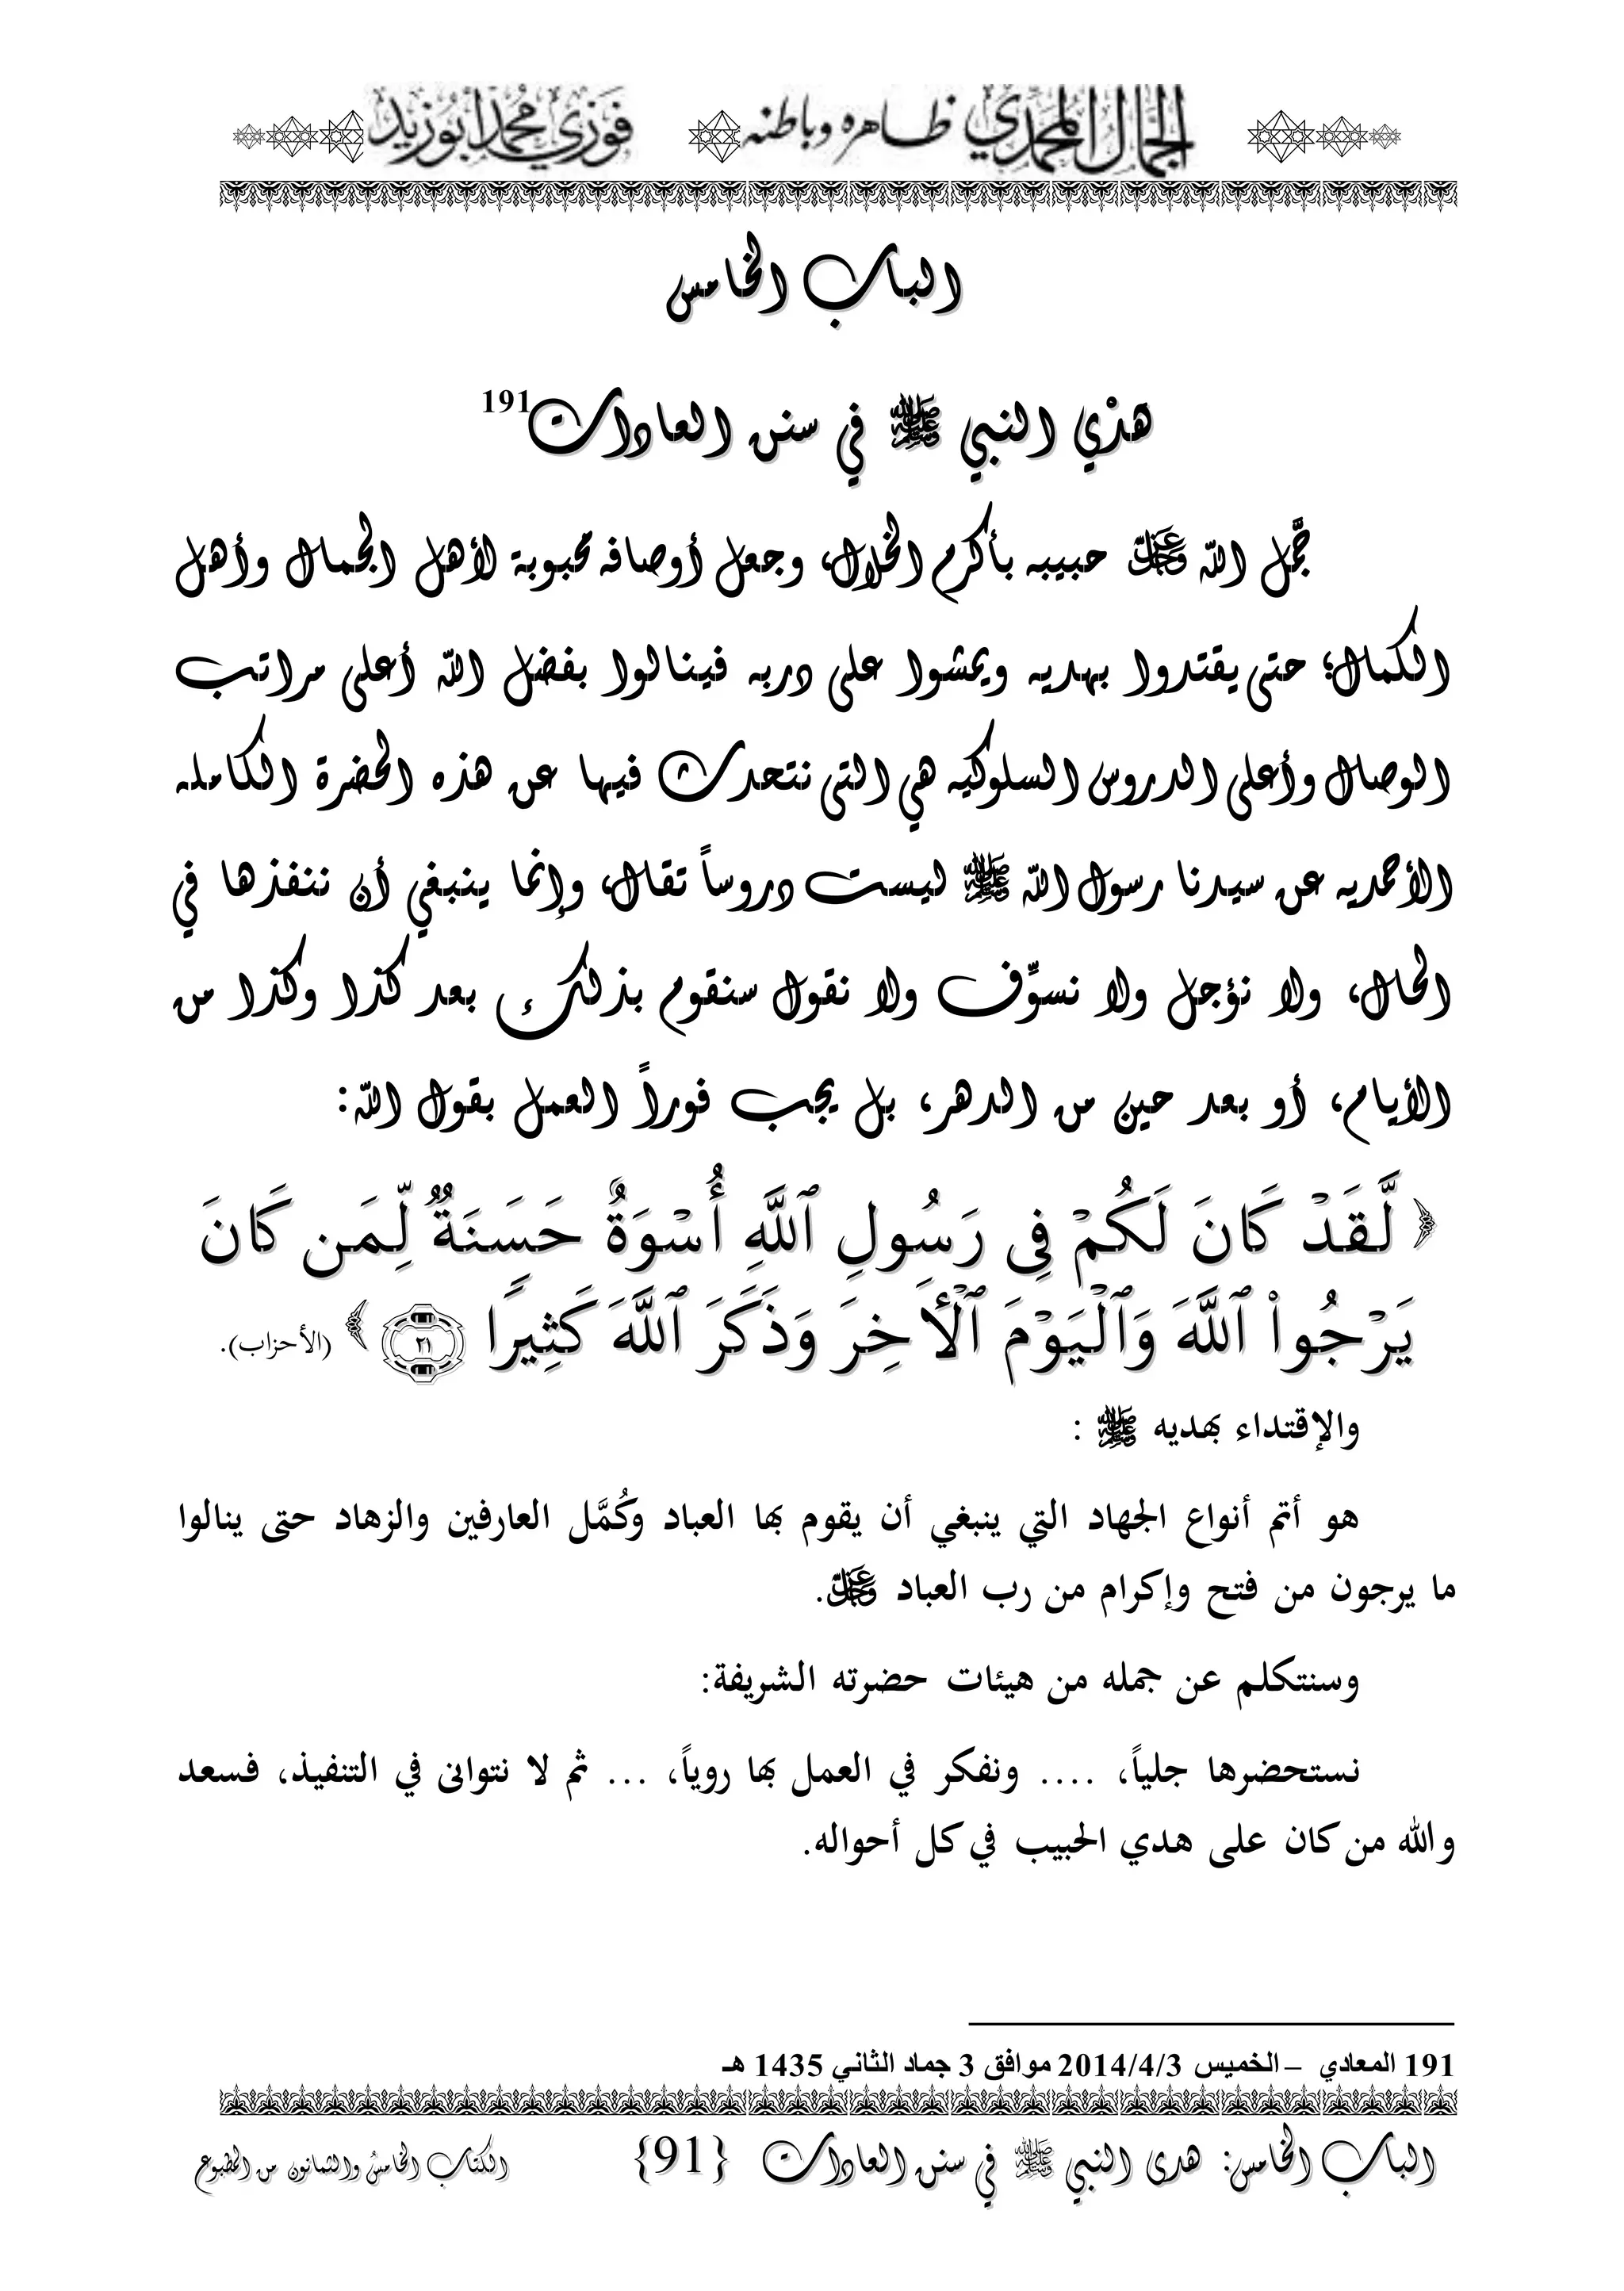 الجمال المحمدي ظاهره وباطنه فوزي محمد أبوزيد
الباب الخامس
هدْي النبي ﷺ في سنن العادات191
جمَّل الله ﷿ حبيبه بأكرم الخلال، وجعل أوصافه محبوبة لأهل الجمال وأهل
الكمال؛ حتى يقتدوا بهديه ويمشوا على دربه فينالوا بفضل الله أعلى مراتب
الوصال وأعلى الدروس السلوكيه هي التى نتحدث فيها عن هذه الحضرة الكامله
الأحمديه عن سيدنا رسول الله ﷺ ليست دروساً تقال، وإنما ينبغي أن ننفذها في
الحال، ولا نؤجل ولا نسوِّف ولا نقول سنقوم بذلك بعد كذا وكذا من
الأيام، أو بعد حين من الدهر، بل يجب فوراً العمل بقول الله:
﴿ لَّقَدۡ كَانَ لَكُمۡ فِى رَسُولِ ٱللَّهِ أُسۡوَةٌ حَسَنَةٌ لِّمَن كَانَ
يَرۡجُواْ ٱللَّهَ وَٱلۡيَوۡمَ ٱلۡأَخِرَ وَذَكَرَ ٱللَّهَ كَثِيرًا ٢١ ﴾ (الأحزاب).
والإقتداء بهديه ﷺ :
هو أتم أنواع الجهاد التي ينبغي أن يقوم بها العباد وكُمَّل العارفين والزهاد حتى ينالوا
ما يرجون من فتح وإكرام من رب العباد ﷿.
وسنتكلم عن جمله من هيئات حضرته الشريفة:
نستحضرها جلياً، .... ونفكر في العمل بها روياً، ... ثم لا نتوانى في التنفيذ، فسعد
والله من كان على هدي الحبيب في كل أحواله.
191 المعادي – الخميس 2014/4/3 موافق 3 جماد الثاني 1435 هـ
الباب الخامس: هدى النبي ﷺ في سنن العادات {91} الكتاب الخامسُ والثمانون من المطبوع